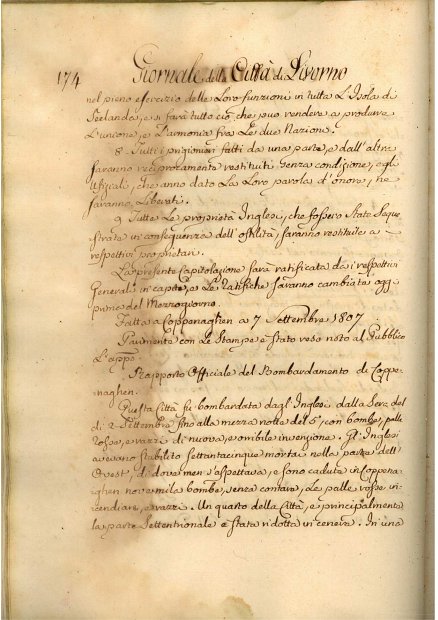 174 Giornale della Città di Livorno
nel pieno esercizio delle Loro funzioni in tutta L'Isola di
Seelanda, e si farà tutto ciò, che può vendere a produrre
L'unione, e L'armonia fra Le due Nazioni.
8. Tutti i prigionieri fatti da una parte, e dall'altre
saranno reciprocamente restituiti senza condizione, e gli
Uffiziali, che anno dato La Loro parola d'onore, ne
saranno Liberati.
9. Tutte Le proprietà Inglesi, che fossero State Seque
strate in conseguenza dell'ostilità, saranno restituite a
respettivi proprietari.
La presente Capitolazione sarà ratificata da i respettivi
Generali in capite, e Le Ratifiche saranno cambiate oggi
prima del Mezzogiorno.
Fatta a Coppenaghen a 7 Settembre 1807
Parimente con Le Stampe è stato reso noto al Pubblico
L'app:
Rapporto Officiale del Bombardamento di Coppe-
naghen.
Questa Città fu bombardata dagl'Inglesi dalla Sera del
dì 2 Settembre fino alla mezza notte del 5, con bombe, palle
rosse, e razzi di nuova, e orribile invenzione. Gl'Inglesi
avevano stabilito settantacinque mortai nella parte dell'
Ovest, di dove men s'aspettava, e sono cadute in Coppena-
ighen novemila bombe, senza contare, Le palle rosse in-
cendiare, e razzi. Un quarto della Città, e principalmente
la parte Settentrionale è stata ridotta in cenere. In una